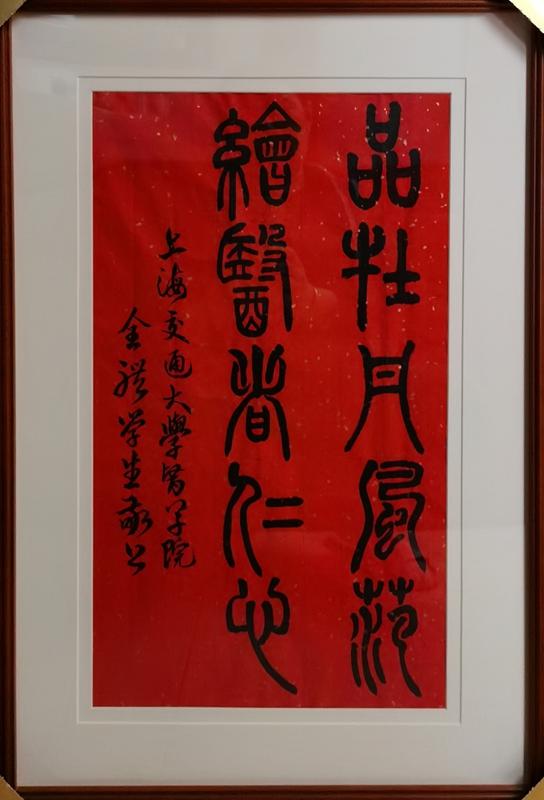 品牡丹風范
繪醫者仁心
上海交通大學醫学院
全體学生敬上